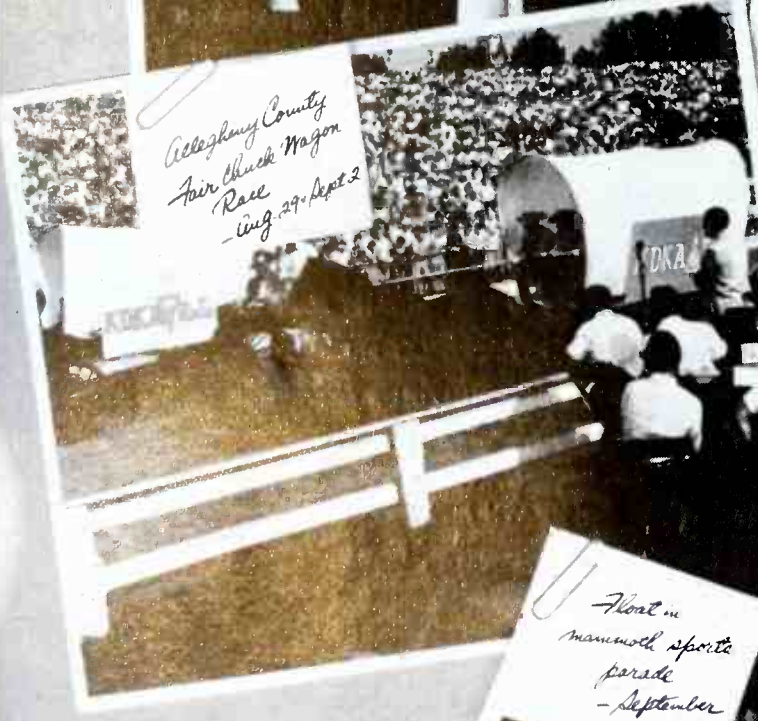 Allegheny County
Fair Chuck Wagon
Race
- Aug. 29 - Sept 2
KDKA
KDKA
Float in
mammoth sports
parade
- September